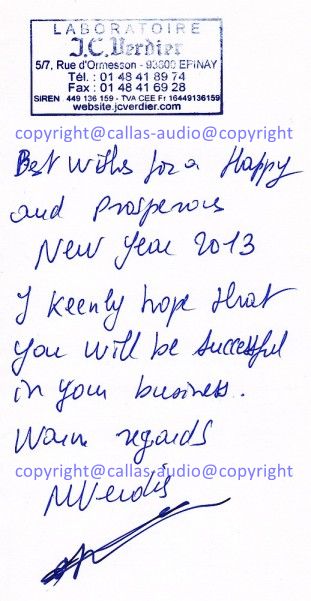 LABORATOIRE
J.C.Verdier
5/7, Rue d'Ormesson - 93800 EPINAY
Tél. : 01 48 41 89 74
Fax : 01 48 41 69 28
SIREN 449 136 159 - TVA CEE Fr 16449136159
website.jcverdier.com
copyright@callas-audio@copyright
Best wishes for a Happy
and Prosperous
New Year 2013
I keenly hope that
you will be successful
in your business.
Warm regards
copyright@callas-audio@copyright